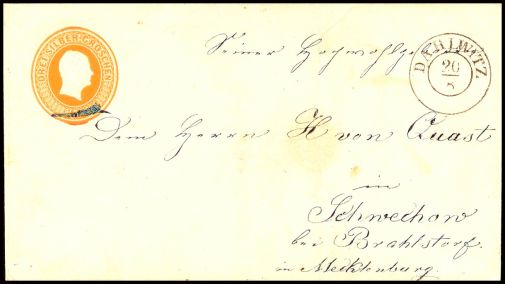 DREI SILBER GROSCHEN
Seiner Hochwohlgeb
DAHLWITZ
20
8
Dem Herrn H von Quast
in
Schwechow
bei Brahlstorf
in Mecklenburg.